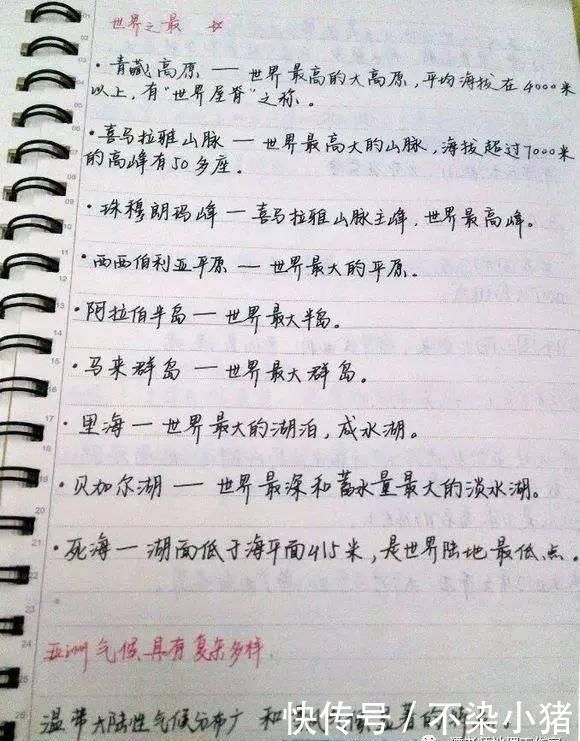 世界之最 ☆
·青藏高原 — 世界最高的大高原,平均海拔在4000米
以上,有"世界屋脊"之称。
·喜马拉雅山脉 — 世界最高大的山脉,海拔超过7000米
的高峰有50多座。
·珠穆朗玛峰 — 喜马拉雅山脉主峰,世界最高峰。
·西西伯利亚平原 — 世界最大的平原.
·阿拉伯半岛 — 世界最大半岛。
·马来群岛 — 世界最大群岛。
·里海 — 世界最大的湖泊,咸水湖。
·贝加尔湖 — 世界最深和蓄水量最大的淡水湖。
·死海 — 湖面低于海平面415米,是世界陆地最低点。
亚洲气候具有复杂多样.
温带大陆性气候分布广 和
快传号 / 不染小猪